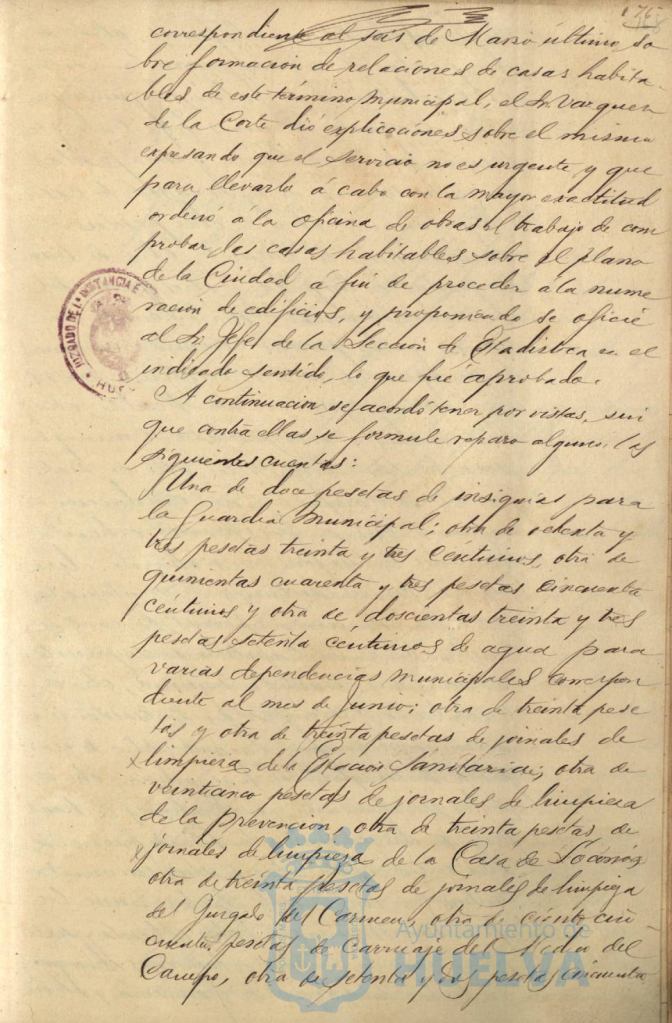 correspondiente al seis de Marzo último so
bre formación de relaciones de casas habita-
bles de este término municipal, el Sr. Vazquez
de la Corte dió explicaciones sobre el mismo
expresando que el servicio no es urgente y que
para llevarlo á cabo con la mayor exactitud
ordenó á la oficina de obras el trabajo de com
probar las casas habitables sobre el plano
de la Ciudad, á fin de proceder á la nume
ración de edificios, y proponiendo se oficie
al Sr. Jefe de la Sección de Estadistica en el
indicado sentido, lo que fué aprobado.
A continuación, se acordó tener por vistas, sin
que contra ellas se formule reparo alguno, las
siguientes cuentas:
Una de doce pesetas de insignias para
la Guardia Municipal; otra de ochenta y
tres pesetas treinta y tres céntimos, otra de
quinientas cuarenta y tres pesetas cincuenta
céntimos y otra de doscientas treinta y tres
pesetas setenta céntimos de agua para
varias dependencias municipales correspon
diente al mes de Junio; otra de treinta pese
tas y otra de treinta pesetas de jornales de
limpieza de la Estación Sanitaria; otra de
veinticinco pesetas de jornales de limpieza
de la prevención, otra de treinta pesetas de
jornales de limpieza de la Casa de Socorro,
otra de treinta pesetas de jornales de limpieza
del Juzgado del Carmen, otra de ciento cin
cuenta pesetas de carruaje del Medico del
Campo, otra de setenta y dos pesetas cincuenta
JUZGADO DE 1ª INSTANCIA E
Ayuntamiento de
HUELVA